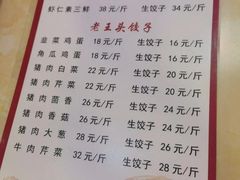 虾仁素三鲜 38元/斤 生饺子 34元/斤
老王头饺子
韭菜鸡蛋 18元/斤 生饺子 16元/斤
角瓜鸡蛋 18元/斤 生饺子 16元/斤
猪肉白菜 22元/斤 生饺子 20元/斤
猪肉芹菜 22元/斤 生饺子 20元/斤
猪肉茴香 26元/斤 生饺子 24元/斤
猪肉香菇 26元/斤 生饺子 24元/斤
猪肉大葱 28元/斤 生饺子 26元/斤
牛肉芹菜 32元/斤 生饺子 28元/斤